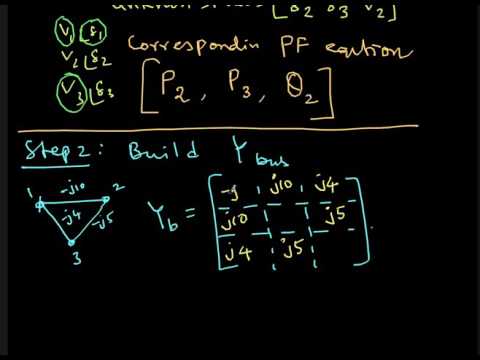 [δ2 δ3 V2]
V1 ∠δ1
Correspondin PF eqution
V2 ∠δ2
V3 ∠δ3
[P2, P3, Q2]
Step 2: Build Ybus
1 -j10 2
-j4 -j5
3
Yb =
-j j10 j4
j10 j5
j4 j5